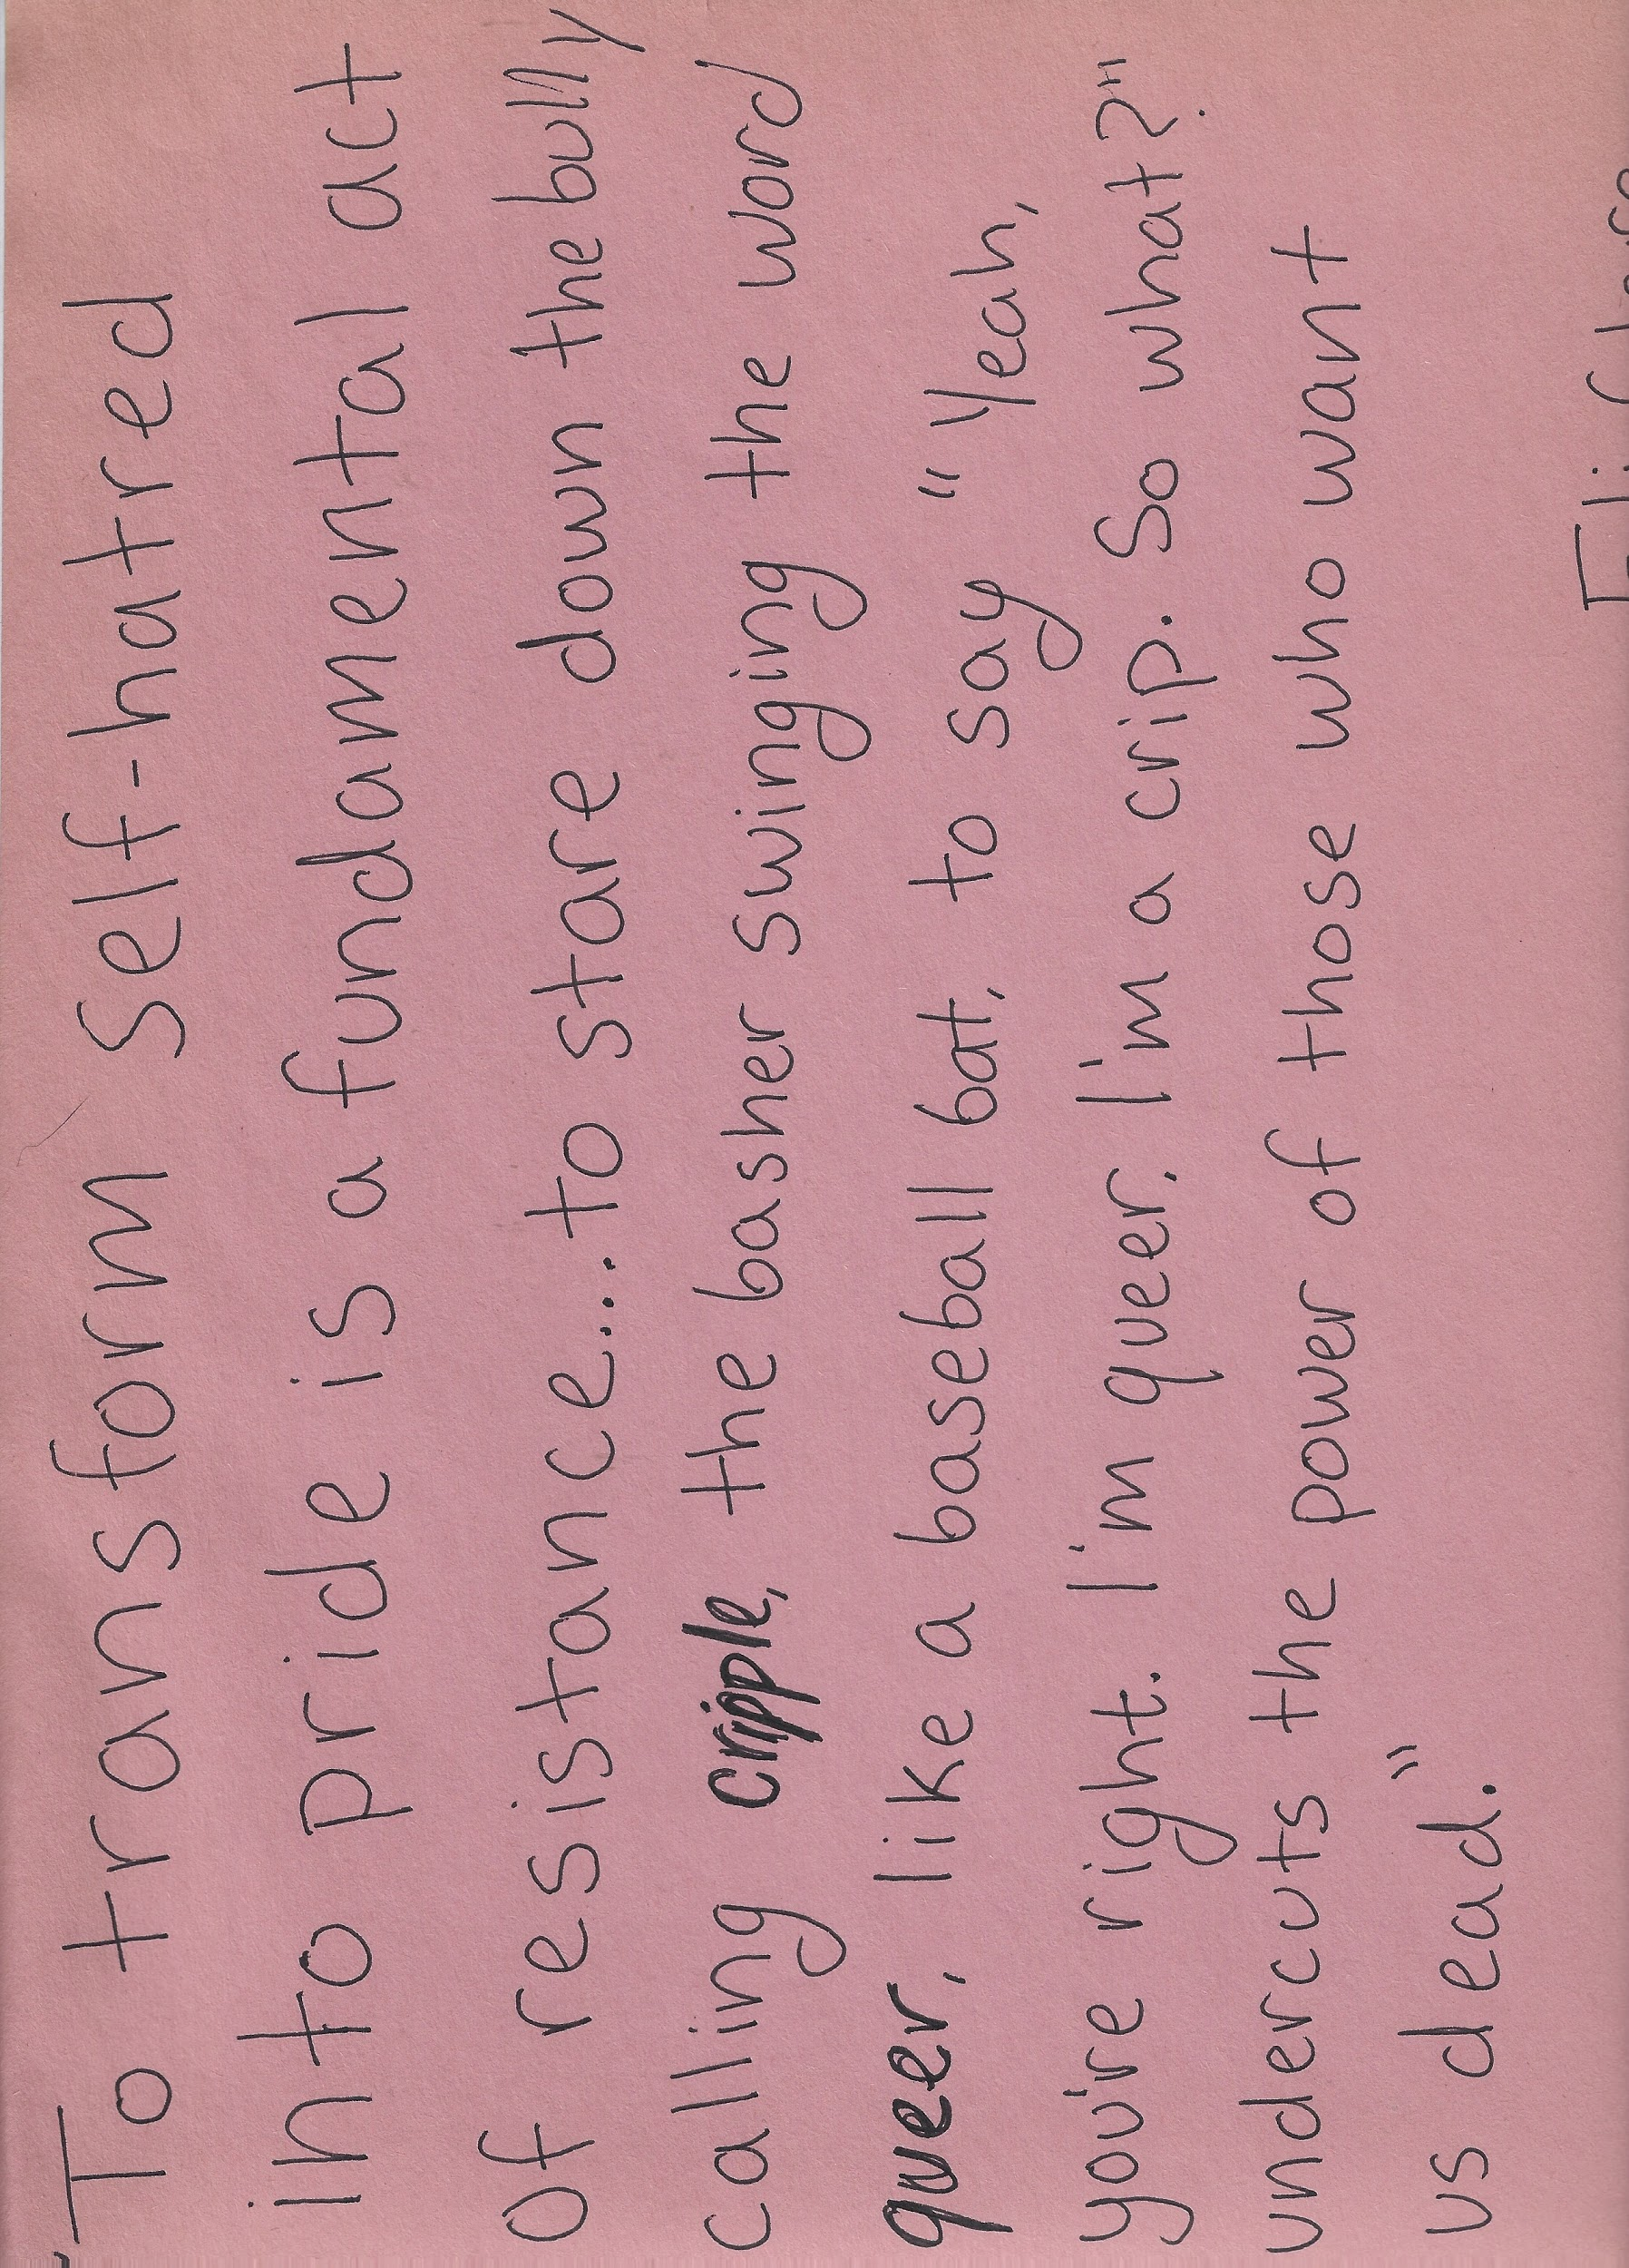 "To transform self-hatred
into pride is a fundamental act
of resistance....to stare down the bully
calling cripple, the basher swinging the word
queer, like a baseball bat, to say "Yeah,
you're right. I'm queer, I'm a crip. So what?"
undercuts the power of those who want
us dead."